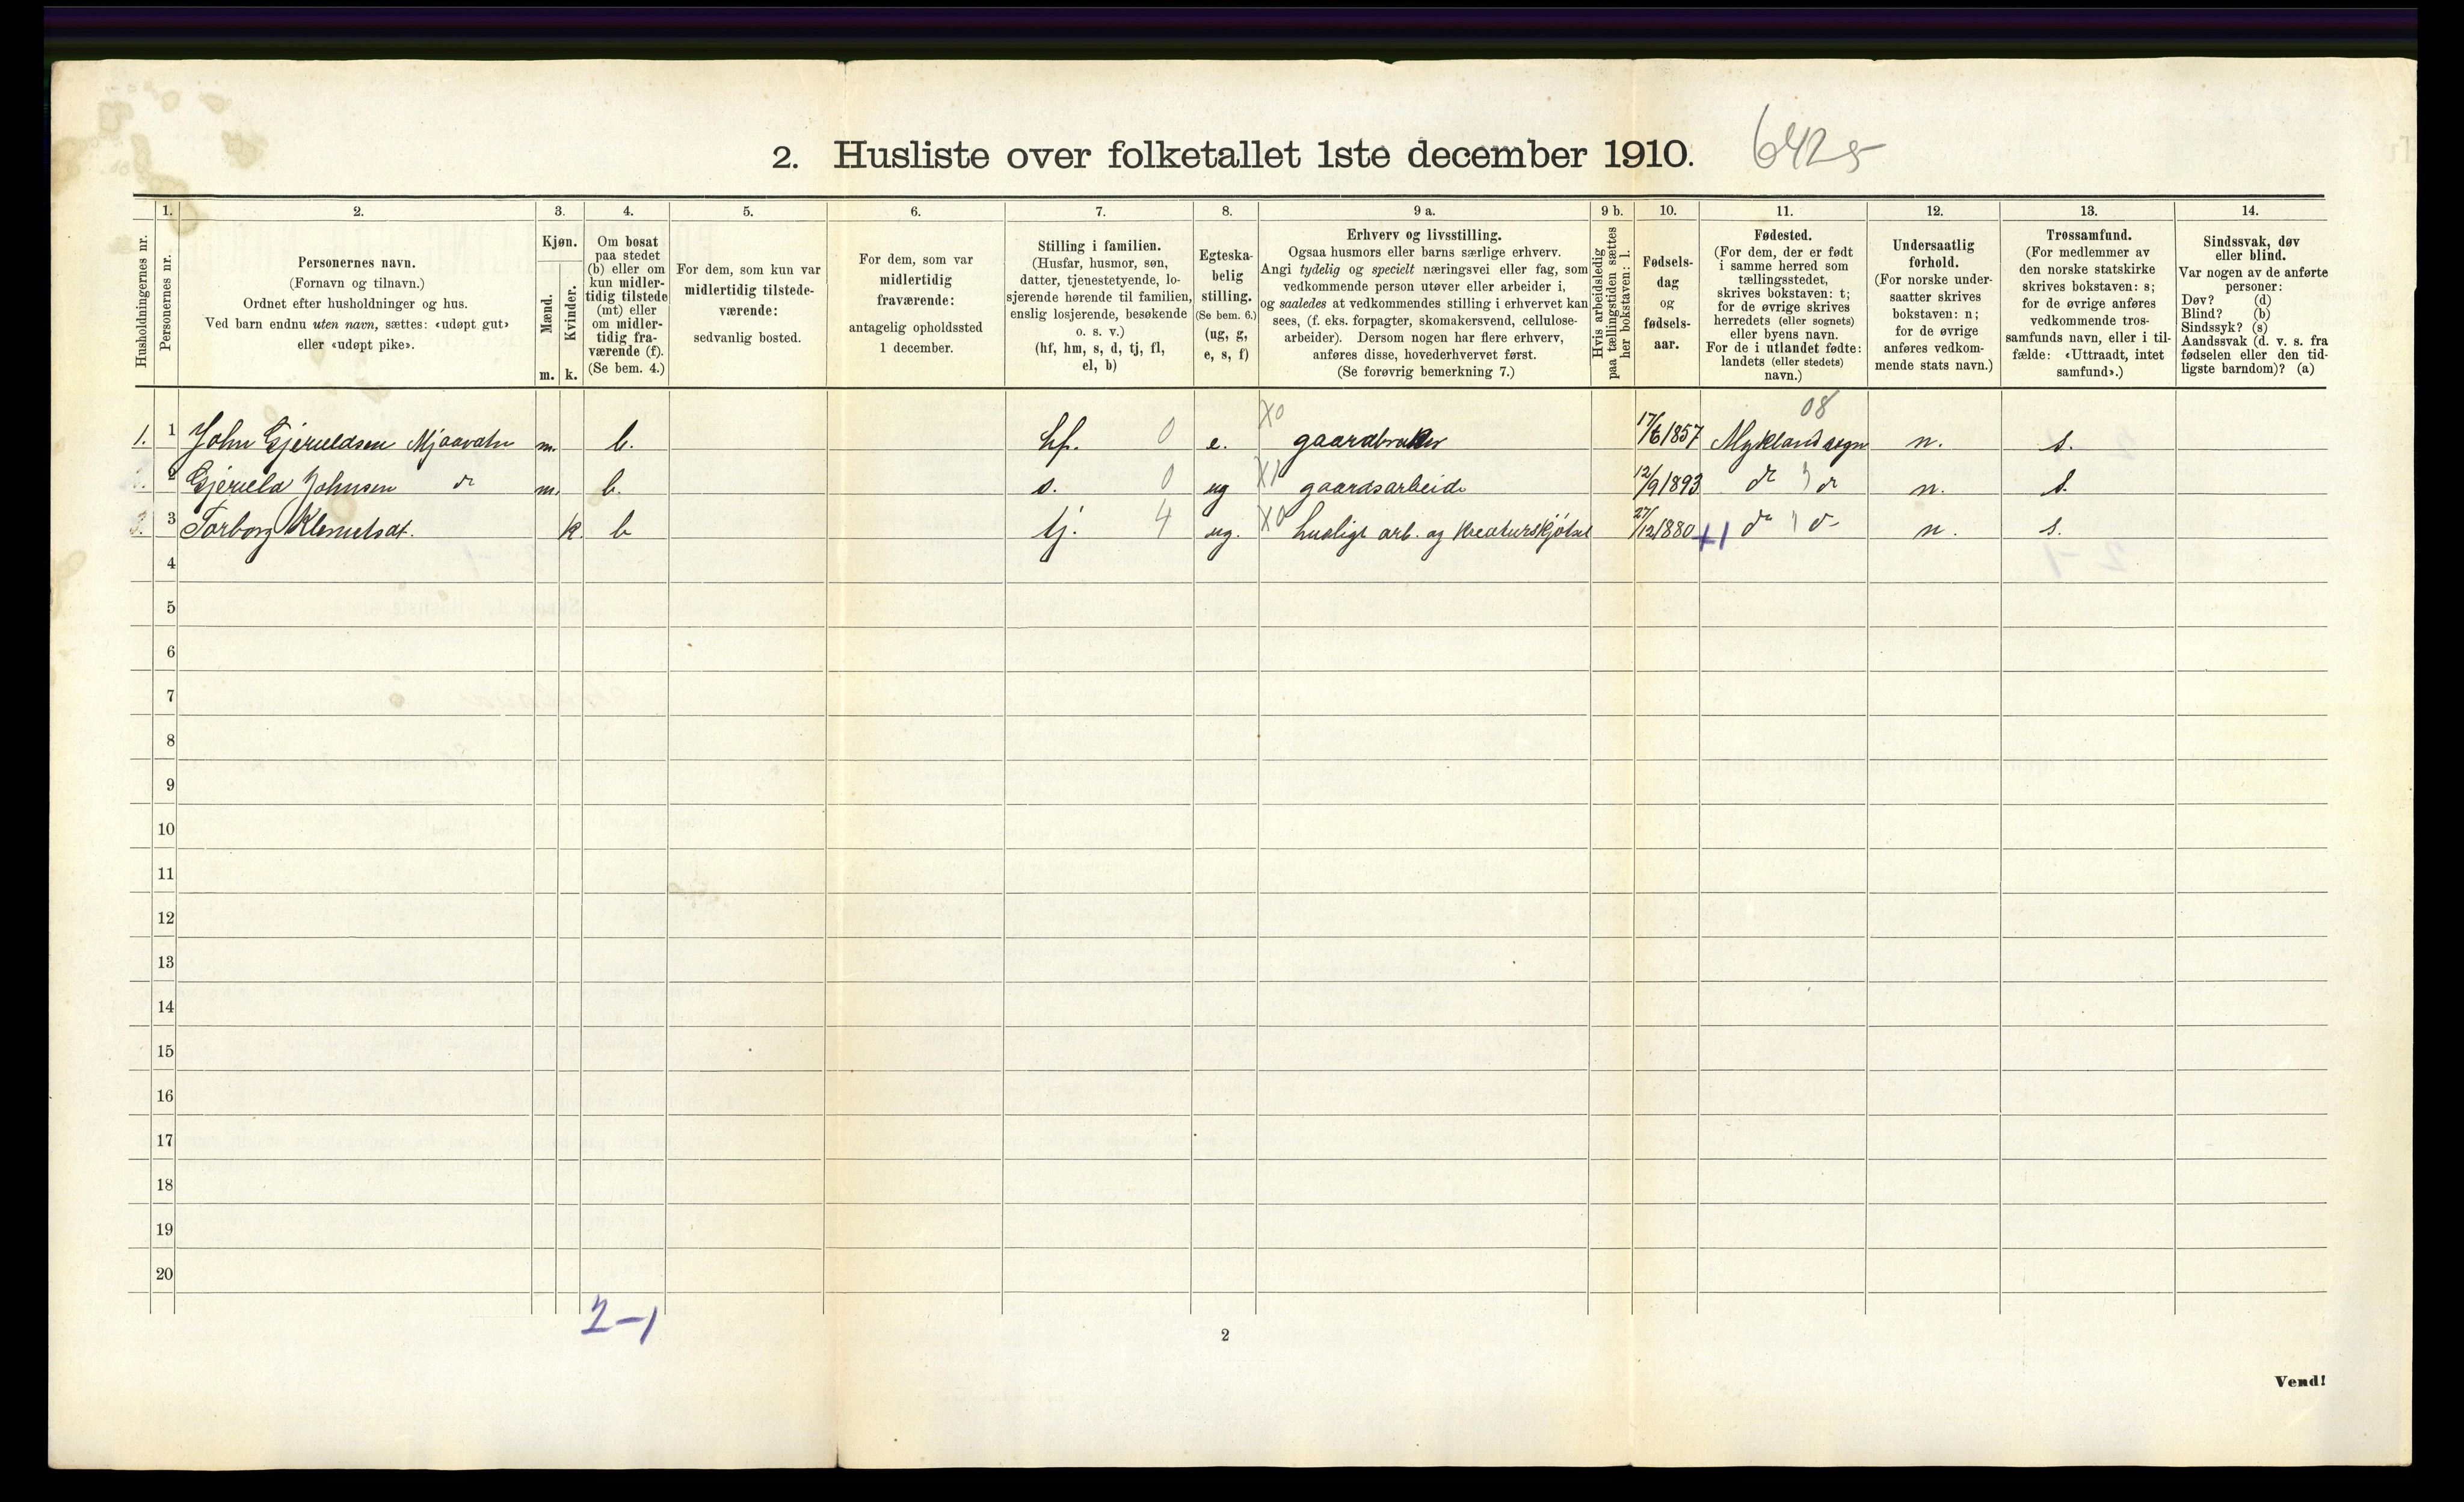 2. Husliste over folketallet 1ste december 1910. 6425
Husholdningernes nr.
1.
Personernes nr.
2.
Personernes navn.
(Fornavn og tilnavn.)
Ordnet efter husholdninger og hus.
Ved barn endnu uten navn, sættes: «udøpt gut»
eller «udøpt pike».
3.
Kjøn.
Mænd.
Kvinder.
m. k.
4.
Om bosat
paa stedet
(b) eller om
kun midler-
tidig tilstede
(mt) eller
om midler-
tidig fra-
værende (f).
(Se bem. 4.)
5.
For dem, som kun var
midlertidig tilstede-
værende:
sedvanlig bosted.
6.
For dem, som var
midlertidig
fraværende:
antagelig opholdssted
1 december.
7.
Stilling i familien.
(Husfar, husmor, søn,
datter, tjenestetyende, lo-
sjerende hørende til familien,
enslig losjerende, besøkende
o. s. v.)
(hf, hm, s, d, tj, fl,
el, b)
8.
Egteska-
belig
stilling.
(Se bem. 6.)
(ug, g,
e, s, f)
9 a.
Erhverv og livsstilling.
Ogsaa husmors eller barns særlige erhverv.
Angi tydelig og specielt næringsvei eller fag, som
vedkommende person utøver eller arbeider i,
og saaledes at vedkommendes stilling i erhvervet kan
sees, (f. eks. forpagter, skomakersvend, cellulose-
arbeider). Dersom nogen har flere erhverv,
anføres disse, hovederhvervet først.
(Se forøvrig bemerkning 7.)
9 b.
Hvis arbeidsledig
paa tællingstiden sættes
her bokstaven: l.
10.
Fødsels-
dag
og
fødsels-
aar.
11.
Fødested.
(For dem, der er født
i samme herred som
tællingsstedet,
skrives bokstaven: t;
for de øvrige skrives
herredets (eller sognets)
eller byens navn.
For de i utlandet fødte:
landets (eller stedets)
navn.)
12.
Undersaatlig
forhold.
(For norske under-
saatter skrives
bokstaven: n;
for de øvrige
anføres vedkom-
mende stats navn.)
13.
Trossamfund.
(For medlemmer av
den norske statskirke
skrives bokstaven: s;
for de øvrige anføres
vedkommende tros-
samfunds navn, eller i til-
fælde: «Uttraadt, intet
samfund».)
14.
Sindssvak, døv
eller blind.
Var nogen av de anførte
personer:
Døv? (d)
Blind? (b)
Sindssyk? (s)
Aandssvak (d. v. s. fra
fødselen eller den tid-
ligste barndom)? (a)
08
1. 1 John Gjeruldsen Mjaavatn m. b. hf. 0 e. X0 gaardbruker 17/6 1857 Mykland sogn n. s.
2 Gjeruld Johnsen do m. b. s. 0 ug X1 gaardsarbeide 12/9 1893 do do n. s.
3 Torborg Klemetsdt. k. b tj. 4 ug. X0 husligt arb. og kreaturskjøtsel 27/12 1880 +1 do do n. s.
4
5
6
7
8
9
10
11
12
13
14
15
16
17
18
19
20
2-1
2
Vend!